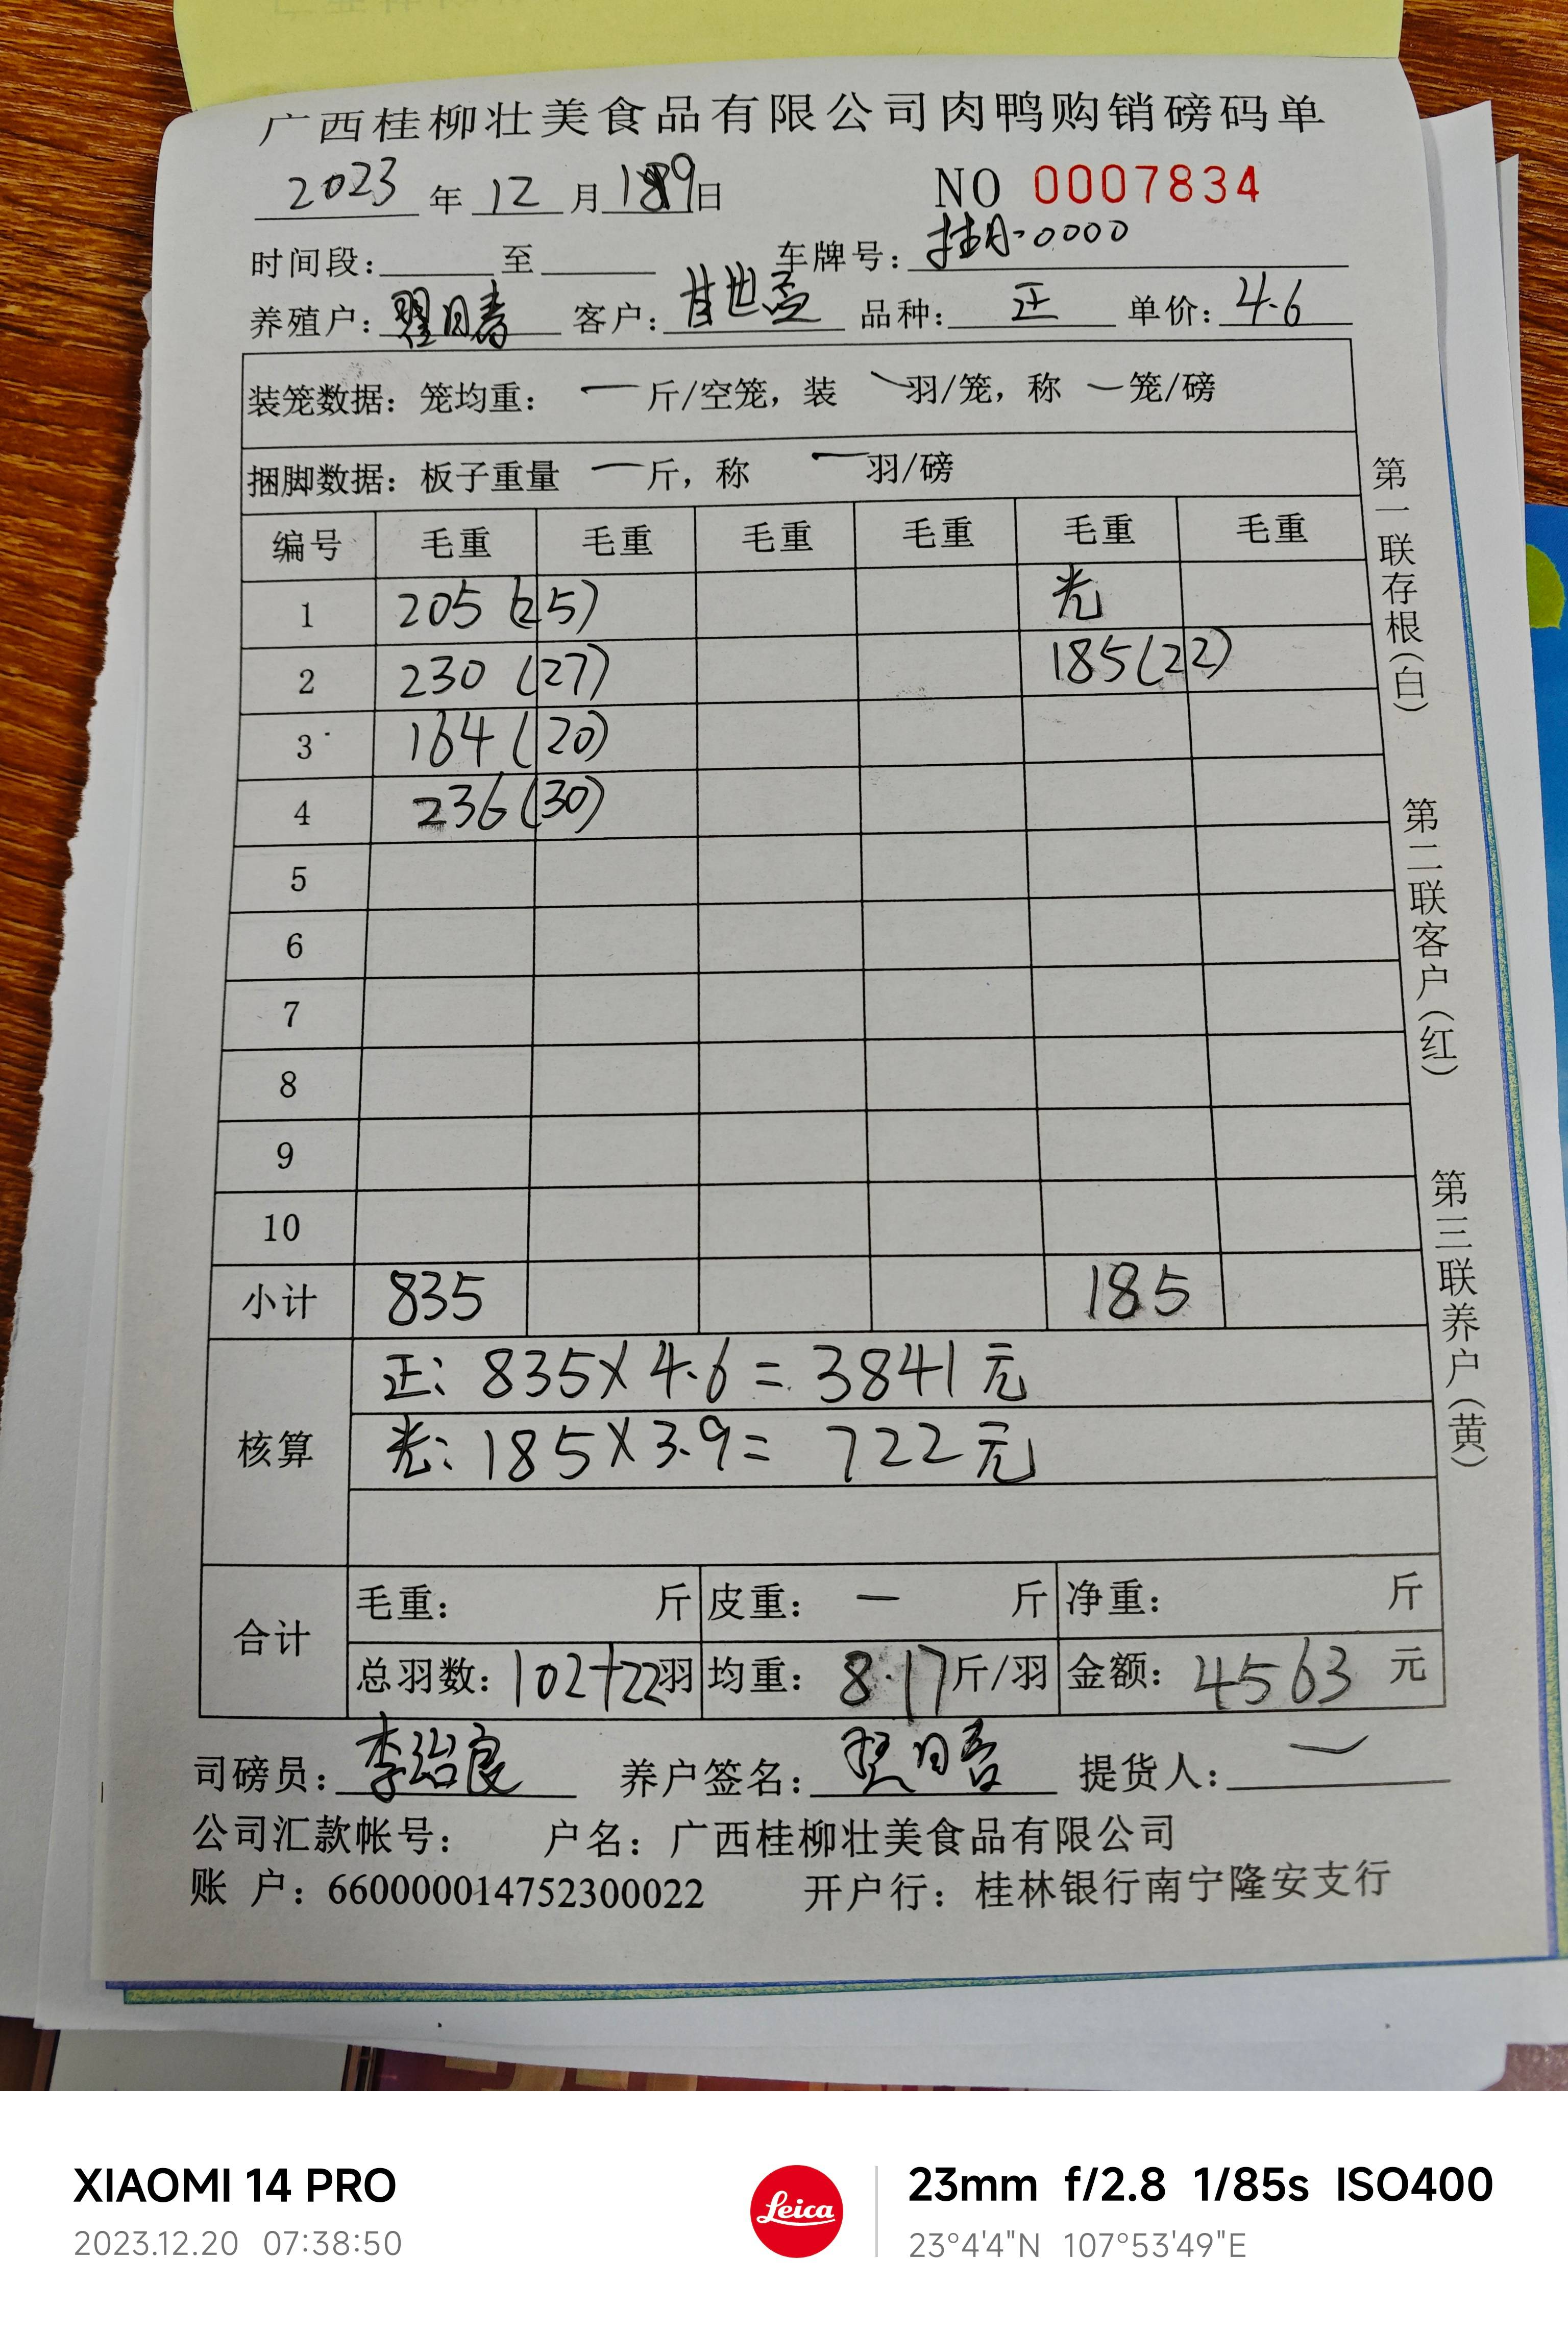 广西桂柳壮美食品有限公司肉鸭购销磅码单
2023 年 12 月 19 日 NO 0007834
时间段: 至 车牌号: 桂A·0000
养殖户: 客户: 甘世孟 品种: 正 单价: 4.6
装笼数据: 笼均重: 一 斤/空笼, 装 一 羽/笼, 称 一 笼/磅
捆脚数据: 板子重量 一 斤, 称 一 羽/磅
编号 毛重 毛重 毛重 毛重 毛重 毛重
1 205 (25) 光
2 230 (27) 185(22)
3 164 (20)
4 236 (30)
5
6
7
8
9
10
小计 835 185
核算 正: 835×4.6= 3841元
光: 185×3.9= 722元
合计 毛重: 斤 皮重: 一 斤 净重: 斤
总羽数: 102+22羽 均重: 8.17斤/羽 金额: 4563 元
司磅员: 李治良 养户签名: 提货人: 一
公司汇款帐号: 户名: 广西桂柳壮美食品有限公司
账 户: 660000014752300022 开户行: 桂林银行南宁隆安支行
第一联存根(白) 第二联客户(红) 第三联养户(黄)
XIAOMI 14 PRO
2023.12.20 07:38:50
Leica
23mm f/2.8 1/85s ISO400
23°4'4"N 107°53'49"E